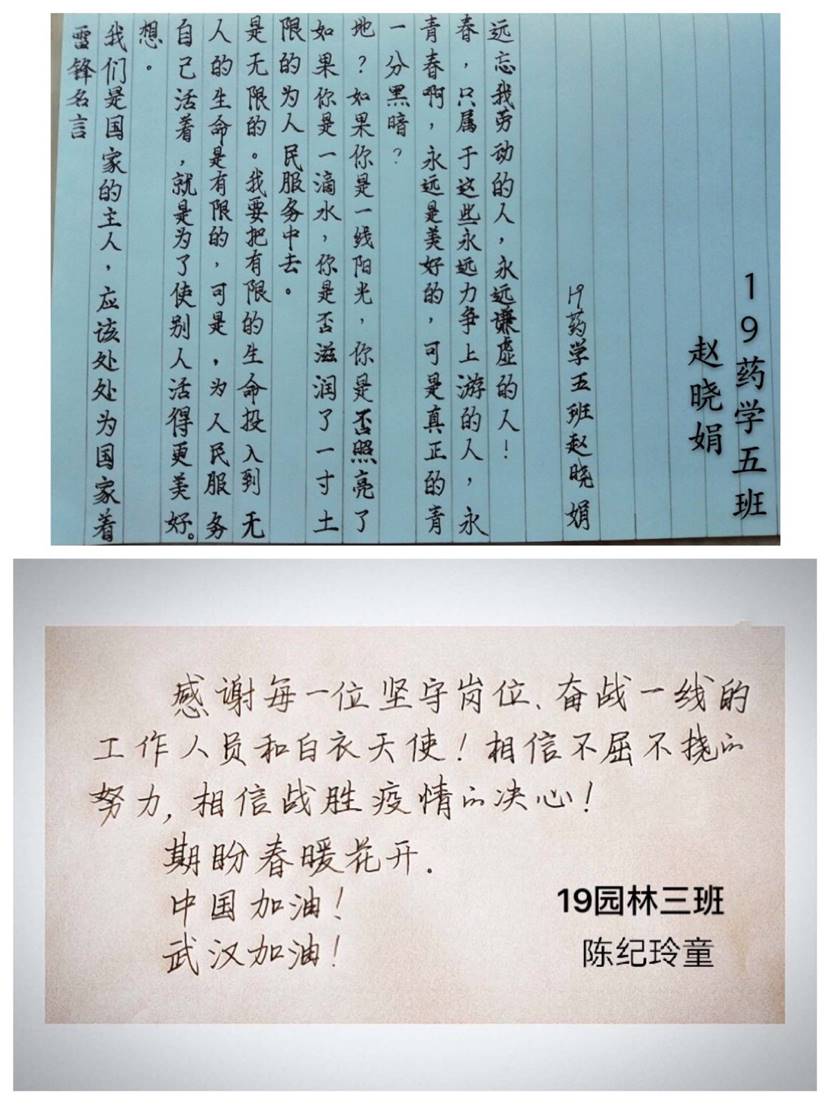 雷锋名言
我们是国家的主人，应该处处为国家着
想。
自己活着，就是为了使别人活得更美好。
人的生命是有限的，可是，为人民服务
是无限的。我要把有限的生命投入到无
限的为人民服务中去。
如果你是一滴水，你是否滋润了一寸土
地？如果你是一线阳光，你是否照亮了
一分黑暗？
青春啊，永远是美好的，可是真正的青
春，只属于这些永远力争上游的人，永
远忘我劳动的人，永远谦虚的人！
19药学五班赵晓娟
19药学五班
赵晓娟
感谢每一位坚守岗位、奋战一线的
工作人员和白衣天使！相信不屈不挠的
努力，相信战胜疫情的决心！
期盼春暖花开.
中国加油！
武汉加油！
19园林三班
陈纪玲童